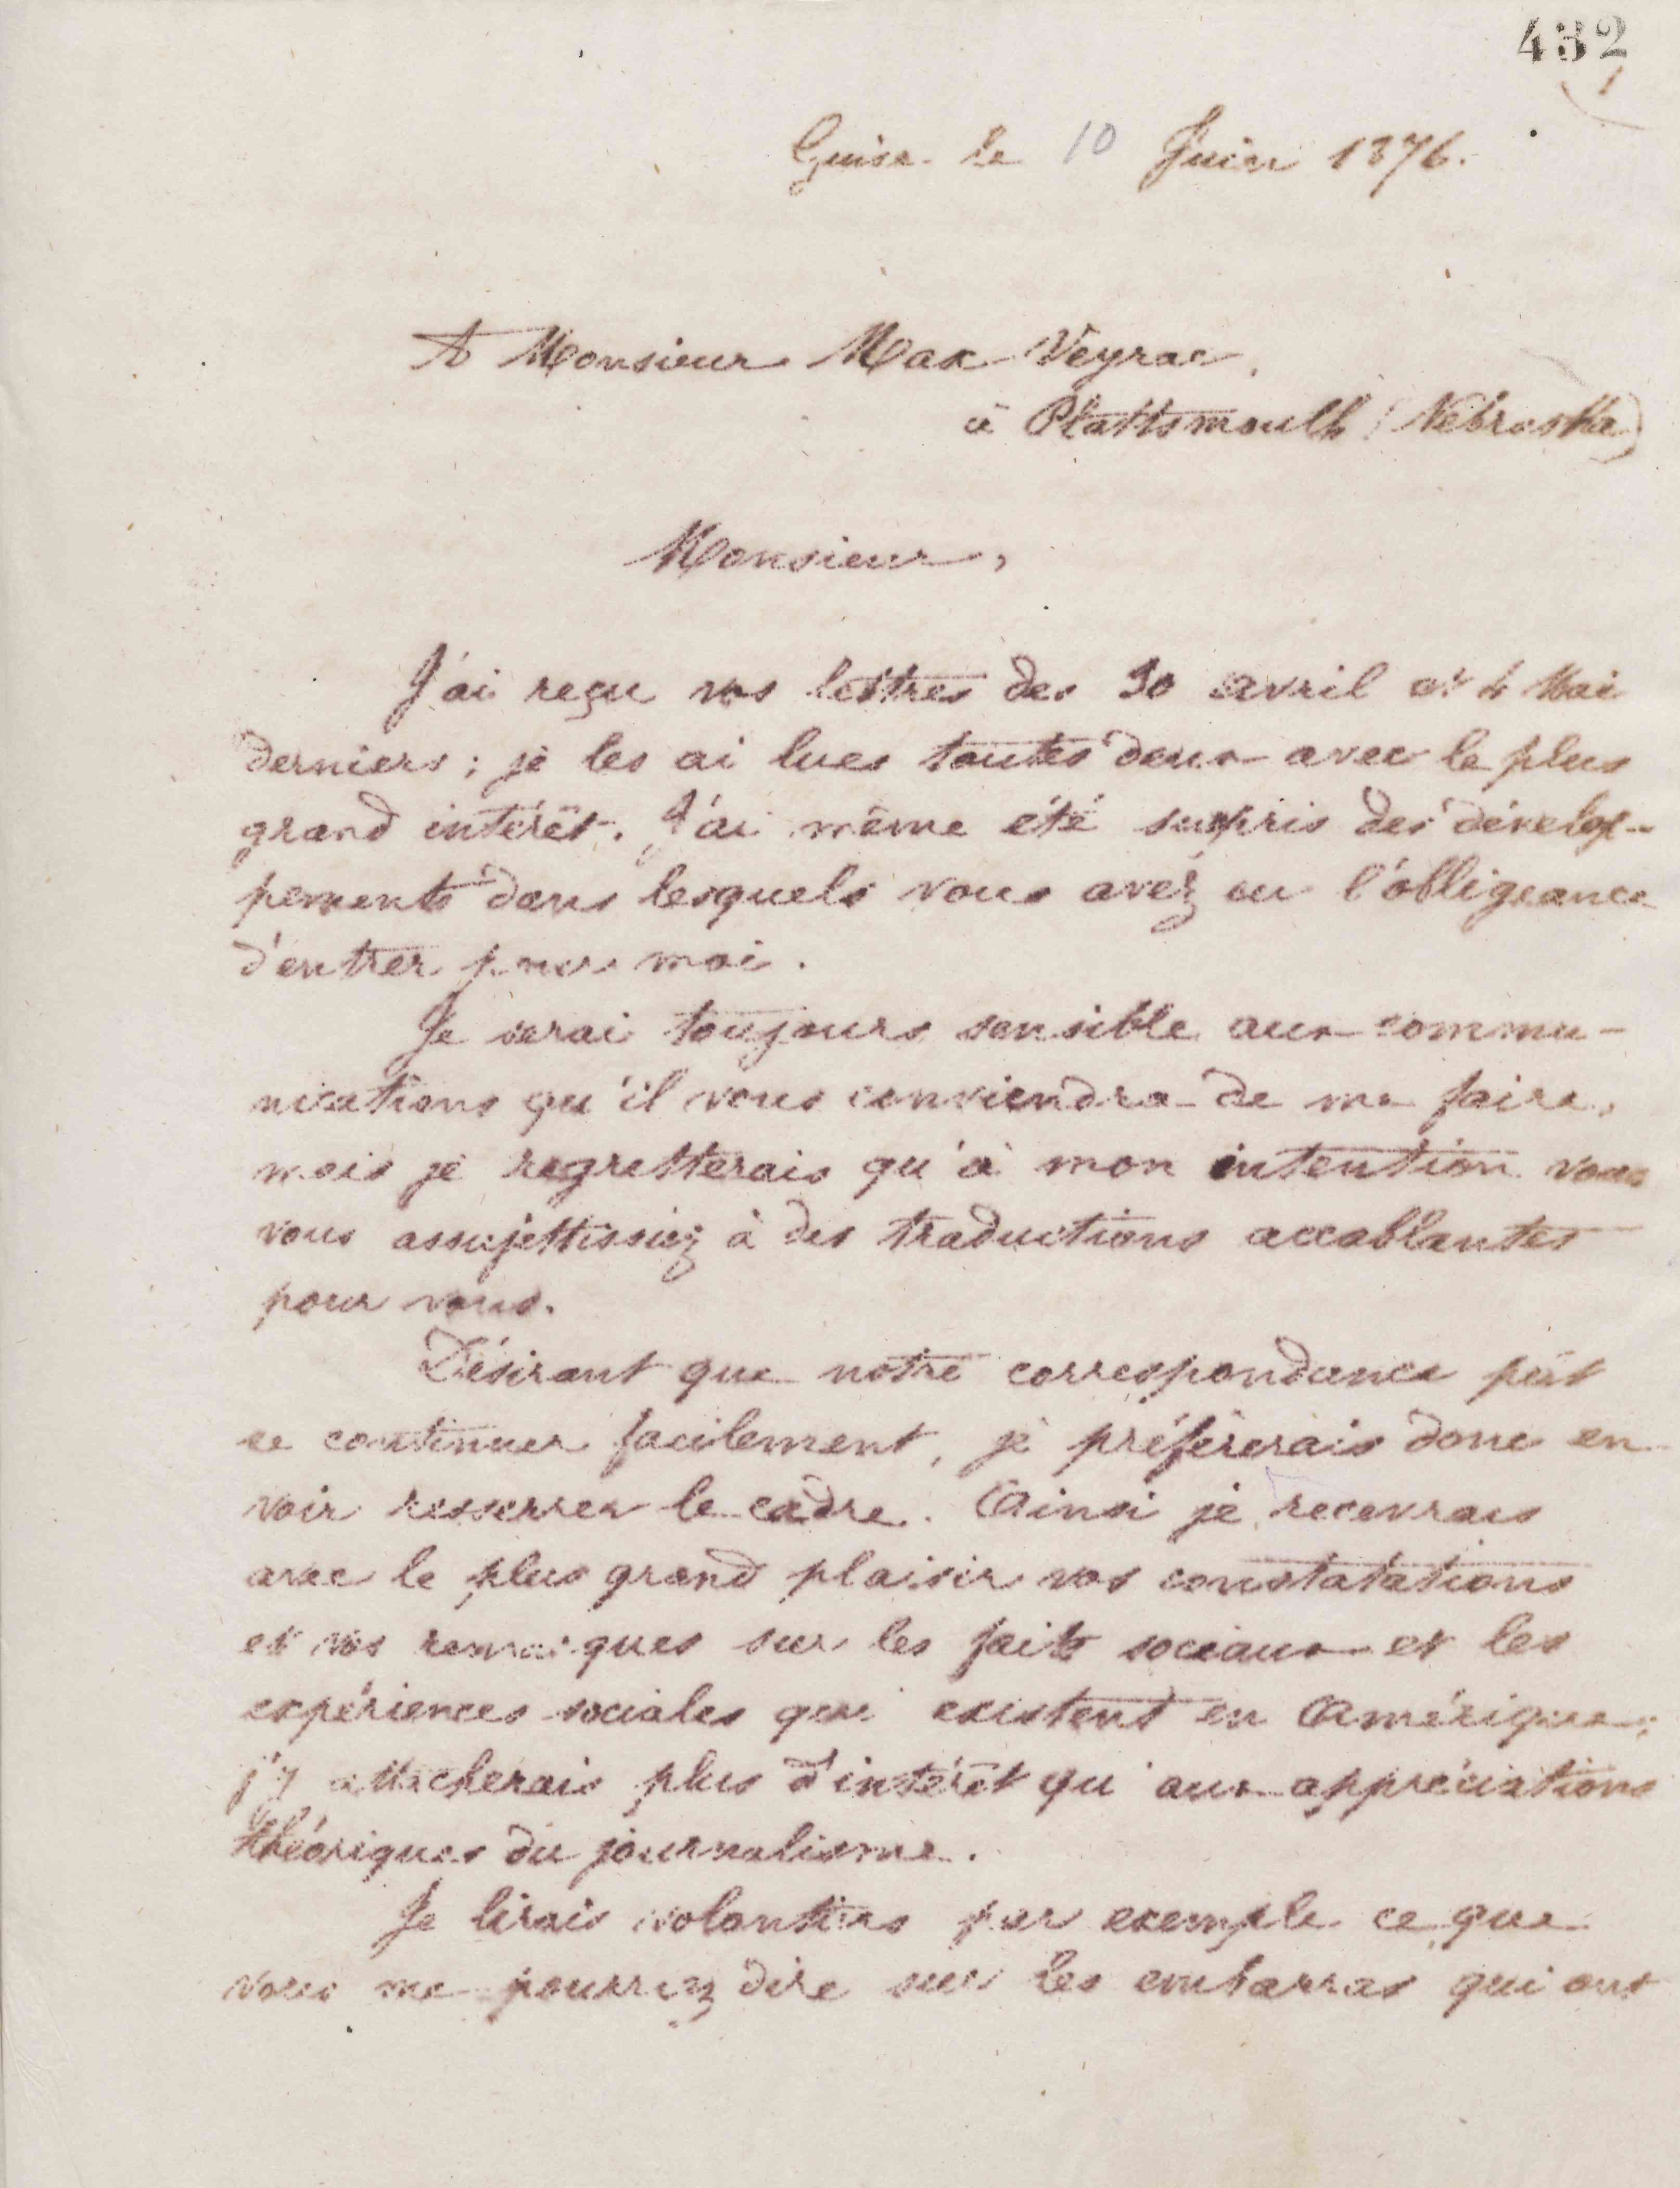 432
1
Guise le 10 Juin 1876.
A Monsieur Max Veyrac,
à Plattsmouth (Nebraska)
Monsieur,
J'ai reçu vos lettres des 30 avril et 4 Mai
derniers ; je les ai lues toutes deux avec le plus
grand intérêt. J'ai même été surpris des dévelop-
pements dans lesquels vous avez eu l'obligeance
d'entrer pour moi.
Je serai toujours sensible aux commu-
nications qu'il vous conviendra de me faire,
mais je regretterais qu'à mon intention vous
vous assujettissiez à des traductions accablantes
pour vous.
Désirant que notre correspondance pût
se continuer facilement, je préfèrerais donc en
voir resserrer le cadre. Ainsi je recevrais
avec le plus grand plaisir vos constatations
et vos remarques sur les faits sociaux et les
expériences sociales qui existent en Amérique ;
j'y attacherais plus d'intérêt qu'aux appréciations
théoriques du journalisme.
Je lirais volontiers par exemple ce que
vous me pourriez dire sur les embarras qui ont